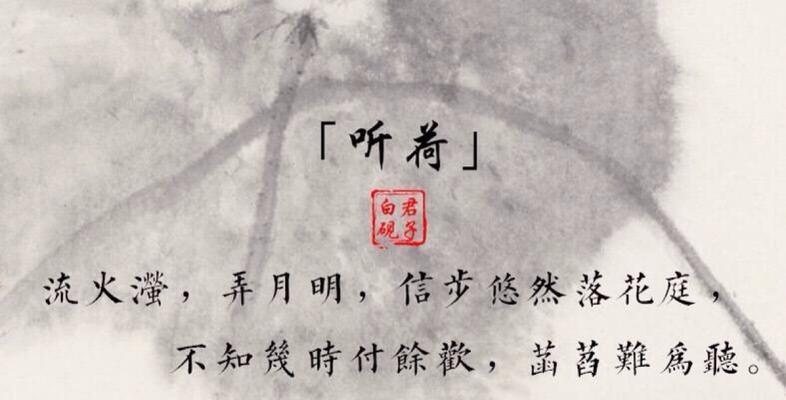 「听荷」
君子
白硯
流火瀅，弄月明，信步悠然落花庭，
不知幾時付餘歡，菡萏難爲聽。